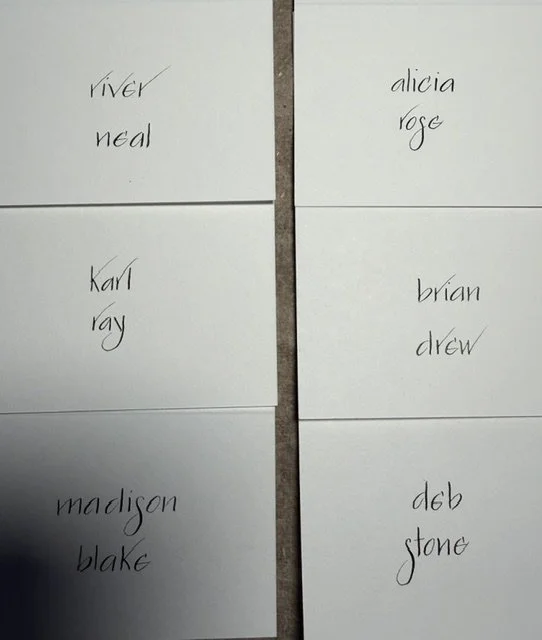 river
neal
alicia
rose
karl
ray
brian
drew
madison
blake
deb
stone